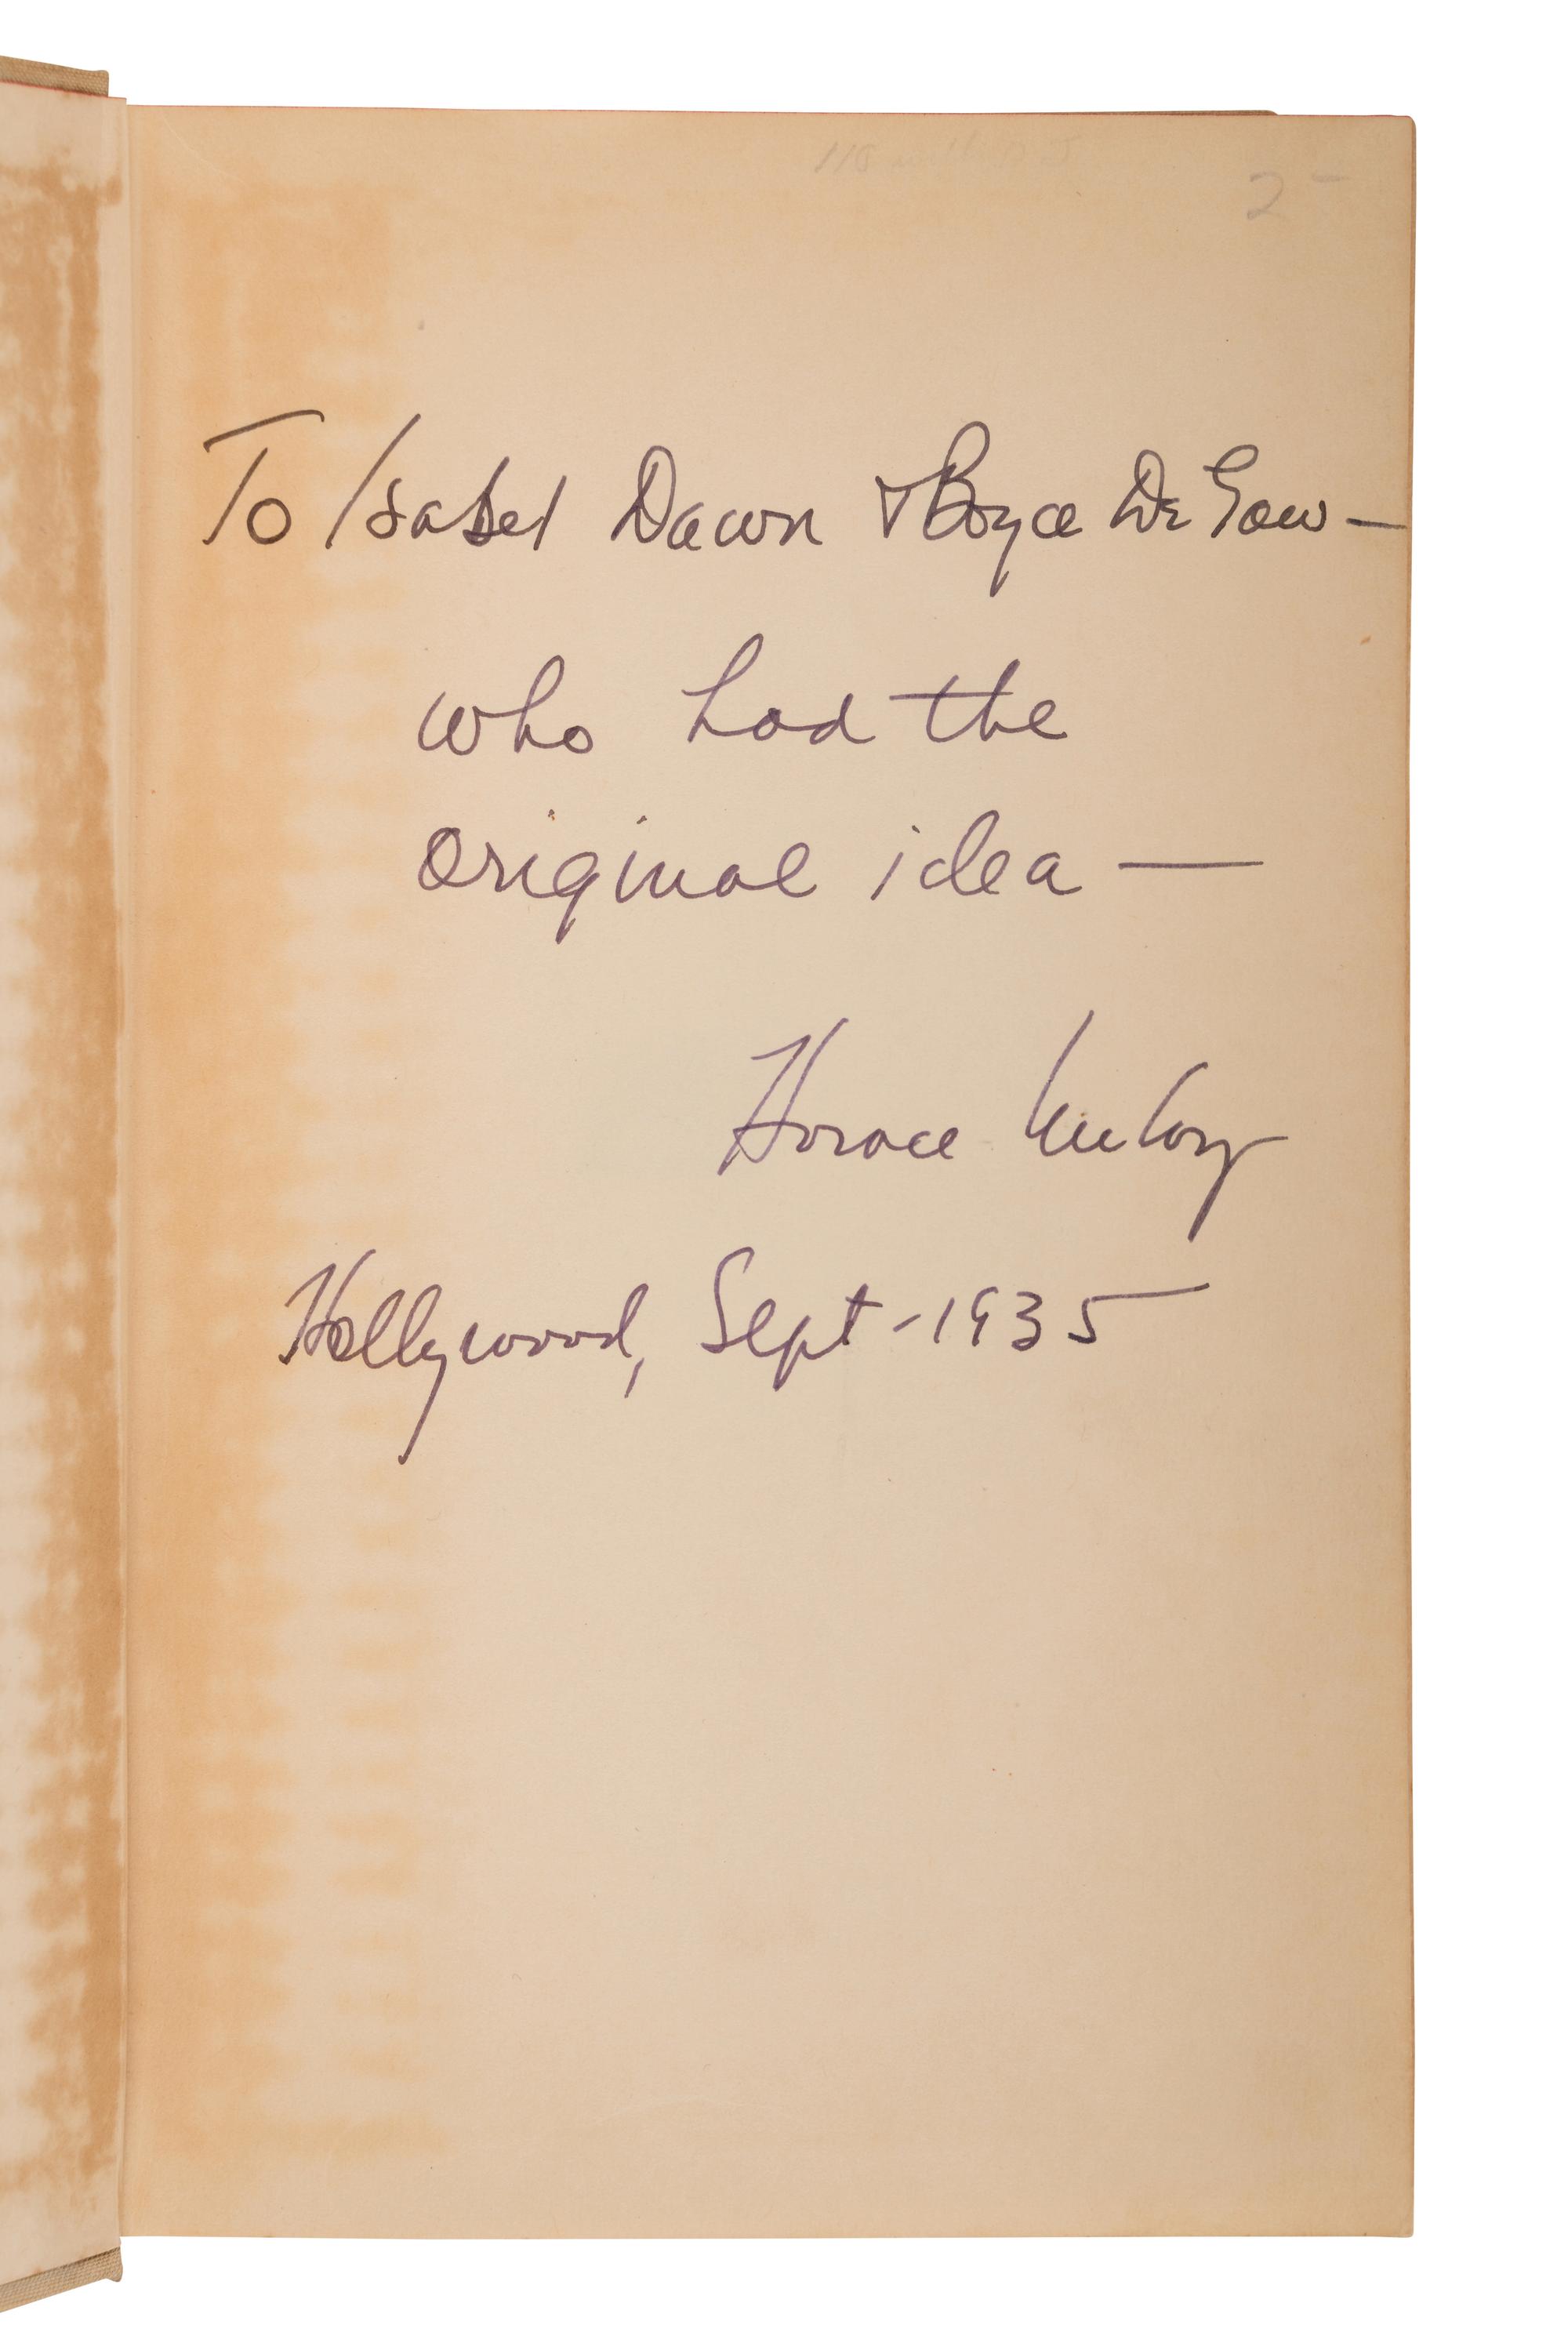 25
To Isabel Dawn & Boyce De Gaw —
who had the
original idea —
Horace McCoy
Hollywood, Sept - 1935